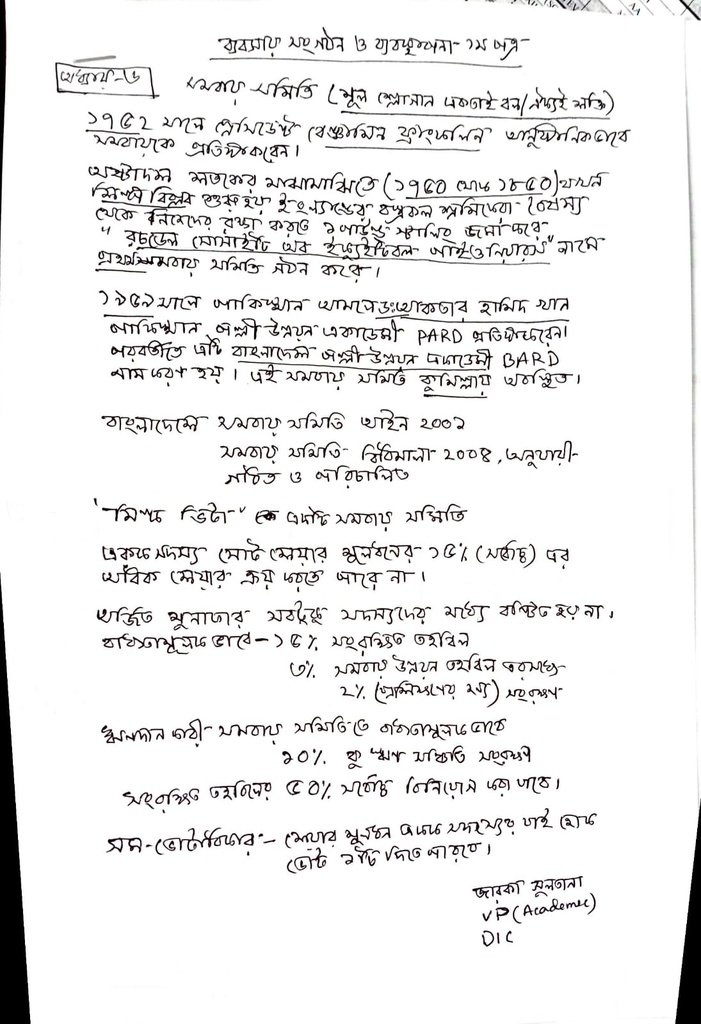 ব্যবসায় সংগঠন ও ব্যবস্থাপনা- ১ম পত্র
অধ্যায়-৬
সমবায় সমিতি (মূল শ্লোগান একতাই বল/ঐক্যই শক্তি)
১৭৫২ সালে প্রেসিডেন্ট বেঞ্জামিন ফ্রাংকলিন আনুষ্ঠানিকভাবে
সমবায়কে প্রতিষ্ঠাকরেন।
অষ্টাদশ শতকের মাঝামাঝিতে (১৭৫০ থেকে ১৮৫০) যখন
শিল্প বিপ্লব শুরু হয় ইংল্যান্ডের বস্ত্রকল শ্রমিকেরা বৈষম্য
থেকে নিজেদের রক্ষা করতে ১ পাউন্ড স্টার্লিং জমা করে
"রচডেল সোসাইটি অব ইক্যুইটিবল পাইওনিয়ারস" নামে
প্রথমসমবায় সমিতি গঠন করে।
১৯৫৯ সালে পাকিস্থান আমলেডঃআকতার হামিদ খান
পাকিস্থান পল্লী উন্নয়ন একাডেমী PARD প্রতিষ্ঠাকরেন।
পরবর্তীতে এটি বাংলাদেশ পল্লী উন্নয়ন একাডেমী BARD
নামকরণ হয়। এই সমবায় সমিতি কুমিল্লায় অবস্থিত।
বাংলাদেশে সমবায় সমিতি আইন ২০০১
সমবায় সমিতি- বিধিমালা ২০০৪, অনুযায়ী-
গঠিত ও পরিচালিত
"মিল্ক ভিটা" একটি সমবায় সমিতি
একজন সদস্য মোট শেয়ার মূলধনের ১৫% (সর্বোচ্চ) এর
অধিক শেয়ার ক্রয় করতে পারে না।
অর্জিত মুনাফার সবটুকু সদস্যদের মধ্যে বন্টিত হয় না।
বাধ্যতামূলকভাবে- ১৫% সংরক্ষিত তহবিল
৩% সমবায় উন্নয়ন তহবিল
২% (প্রশিক্ষণের জন্য) সংরক্ষণ
ঋণদান কারী- সমবায় সমিতিতে বাধ্যতামূলক ভাবে
১০% কু ঋণ সঞ্চিতি সংরক্ষণ
সংরক্ষিত তহবিলের ৫০% সর্বোচ্চ বিনিয়োগ করা যাবে।
সম-ভোটাধিকার:- শেয়ার মূলধন একেক সদস্যের যাই হোক
ভোট ১টি দিতে পারবে।
সুলতানা
VP (Academic)
DIC